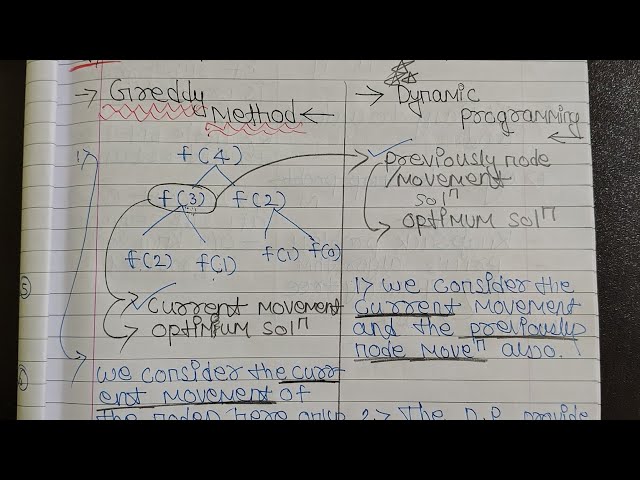 → Greedy
Method ←
1)
f(4)
f(3) f(2)
f(2) f(1) f(1) f(0)
✓ current movement
optimum solⁿ
we consider the curr
ent movement of
the nodes here only
→ Dynamic
programming
←
✓ previously node
/movement
solⁿ
optimum solⁿ
1) we consider the
current movement
and the previously
node moveⁿ also.
2) The D.P provide